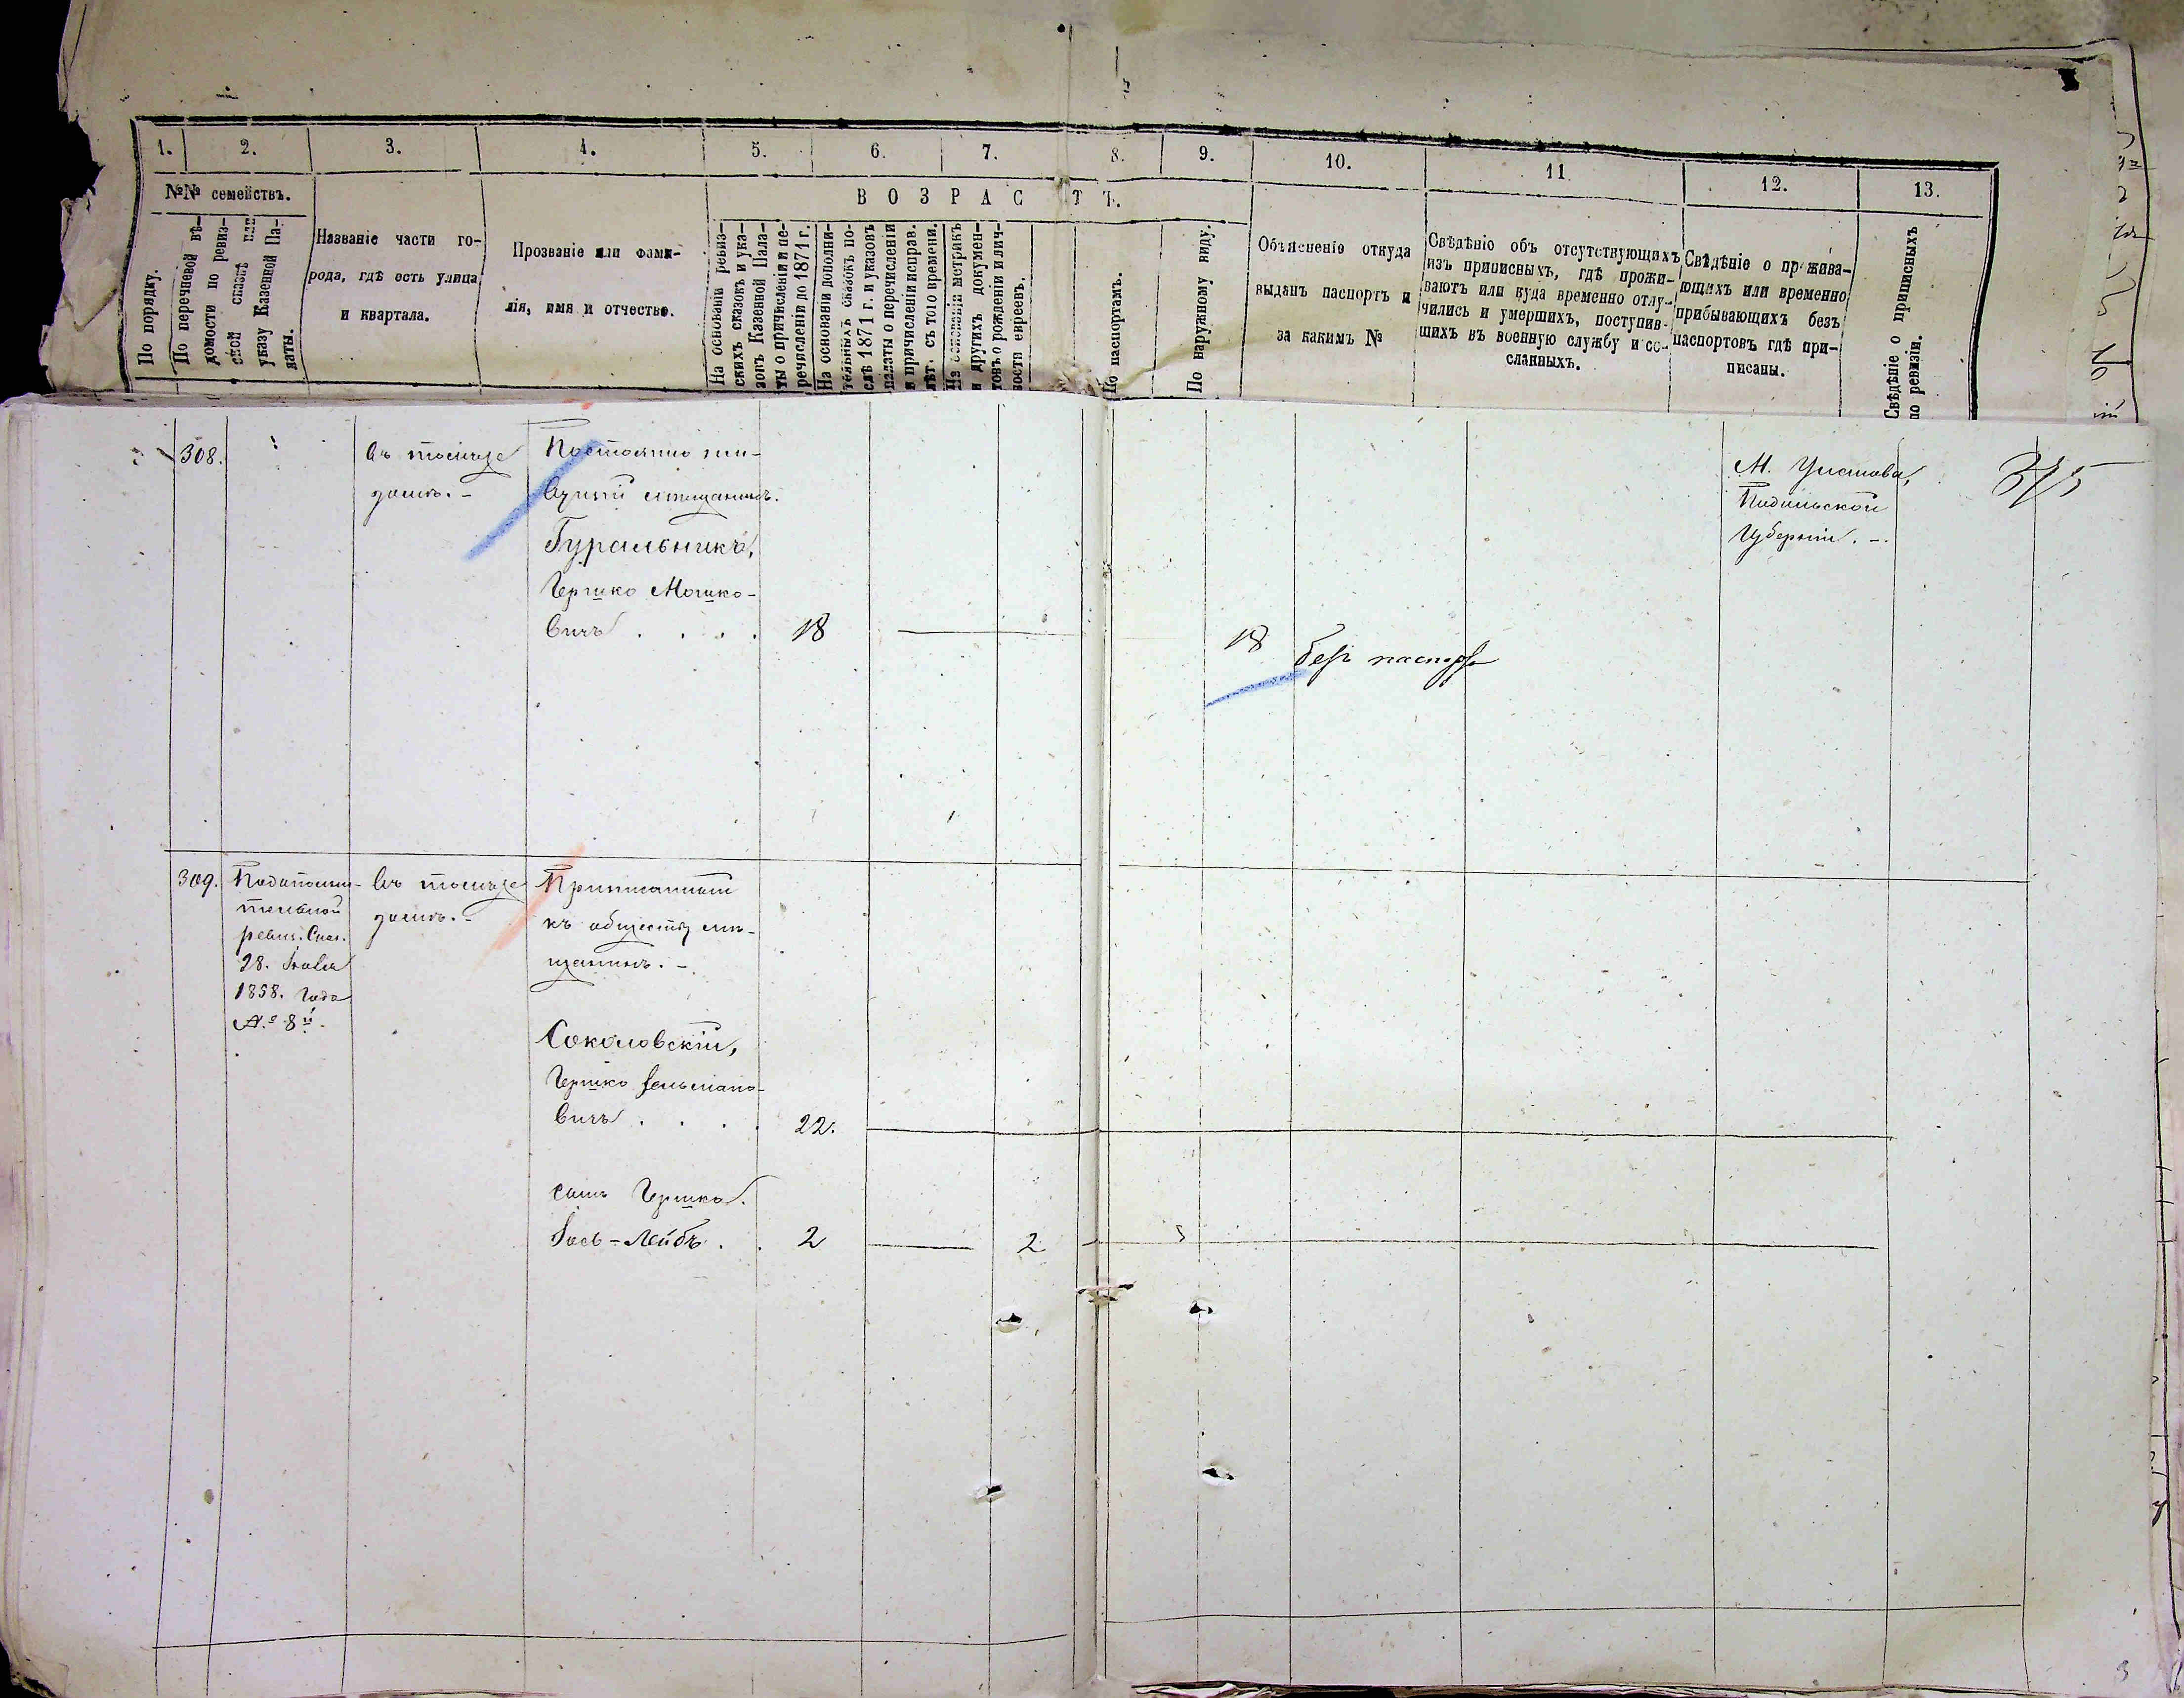 1. 2. 3. 4. 5. 6. 7. 8. 9. 10. 11 12. 13.
№№ семействъ.
ВОЗРАСТЪ.
По порядку.
По перечневой вѣ-
домости по ревиз-
ской сказкѣ или
указу Казенной Па-
латы.
Названіе части го-
рода, гдѣ есть улица
и квартала.
Прозваніе или фами-
лія, имя и отчество.
На основаніи ревиз-
скихъ сказокъ и ука-
зовъ Казенной Пала-
ты о причисленіи и пе-
речисленіи до 1871 г.
На основаніи дополни-
тельныхъ сказокъ по-
слѣ 1871 г. и указовъ
палаты о перечисленіи
и причисленіи исправ.
лѣт. съ того времени.
На основаніи метрикъ
и другихъ докумен-
товъ о рожденіи и лич-
ности евреевъ.
По паспортамъ.
По наружному виду.
Объясненіе откуда
выданъ паспортъ и
за какимъ №
Свѣдѣніе объ отсутствующихъ
изъ приписныхъ, гдѣ прожи-
ваютъ или куда временно отлу-
чились и умершихъ, поступив-
шихъ въ военную службу и со-
сланныхъ.
Свѣдѣніе о прожива-
ющихъ или временно
прибывающихъ безъ
паспортовъ гдѣ при-
писаны.
Свѣдѣніе о приписныхъ
по ревизіи.
308.
въ томъ же
домѣ. -
Постоянно жи-
вущій мѣщанинъ.
Гуральникъ,
Гершко Мошко-
вичъ . . . . 18
18
безъ паспорт
М.
Подольской
Губерніи. -.
309.
По дополни-
тельной
ревиз. Сказ.
28. Іюля
1858. Года
№ 8й.
въ томъ же
домѣ. -
Приписанный
къ обществу мѣ-
щанинъ. -
Соколовскій,
Гершко Зельмано-
вичъ . . . . 22.
сынъ Гершка.
Іось-Лейбъ . . 2 2